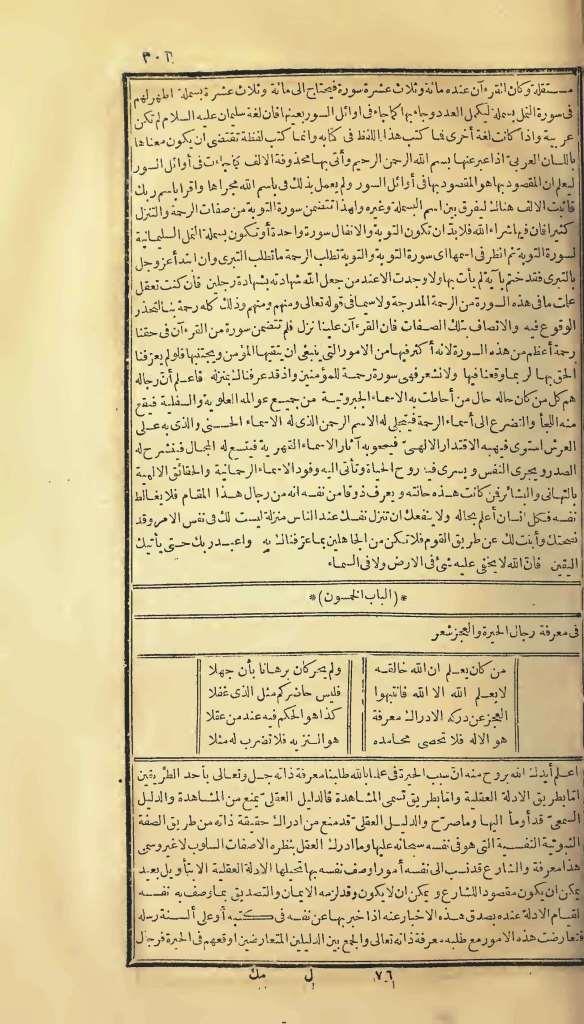 ٣٠٢
مستقلة وكان القرءآن عنده مائة وثلاث عشرة سورة فيحتاج الى مائة وثلاث عشرة بسملة اظهر لهم
فى سورة النمل بسملة ليكمل العدد وجاء بها كما جاء فى اوائل السور بعينها فان لغة سليمان عليه السلام لم تكن
عربية واذا كانت لغة أخرى فما كتب هذا اللفظ فى كتابه وانما كتب لفظة تقتضى ان يكون معناها
باللسان العربى اذا عبر عنها بسم الله الرحمن الرحيم وأتى بها محذوفة الالف كما جاءت فى أوائل السور
ليعلم ان المقصود بها هو المقصود بها فى أوائل السور ولم يعمل بذلك فى باسم الله مجراها واقرا باسم ربك
فاثبت الالف هناك ليفرق بين اسم البسملة وغيره ولهذا تتضمن سورة التوبة من صفات الرحمة والتنزل
كثيرا فان فيها شراء الله فلا بد ان تكون التوبة والانفال سورة واحدة أو تكون بسملة النمل السليمانية
لسورة التوبة ثم انظر فى اسمها اى سورة التوبة والتوبة تطلب الرحمة ما تطلب التبرى وان ابتدأ عز وجل
بالتبرى فقد ختم بآية لم يأت بها ولا وجدت الا عند من جعل الله شهادته بشهادة رجلين فان كنت تعقل
علمت ما فى هذه السورة من الرحمة المدرجة ولا سيما فى قوله تعالى ومنهم ومنهم وذلك كله رحمة بنا لنحذر
الوقوع فيه والاتصاف بتلك الصفات فان القرءآن علينا نزل فلم تتضمن سورة من القرءآن فى حقنا
رحمة أعظم من هذه السورة لانه أكثر فيها من الامور التى ينبغى ان يتقيها المؤمن ويجتنبها فلو لم يعرفنا
الحق بها لربما وقعنا فيها ولا نشعر فهى سورة رحمة للمؤمنين واذ قد عرفناك بمنزله فاعلم أن رجاله
هم كل من كان حاله حال من أحاطت به الاسماء الجبروتية من جميع عوالمه العلوية والسفلية فيقع
منه اللجأ والتضرع الى أسماء الرحمة فيتجلى له الاسم الرحمن الذى له الاسماء الحسنى والذى به على
العرش استوى فيهبه الاقتدار الالهى فيمحو به آثار الاسماء القهرية فيتسع له المجال فينشرح له
الصدر ويجرى النفس ويسرى فيه روح الحياة وتأتى اليه وفود الاسماء الرحمانية والحقائق الالهية
بالتهانى والبشائر فمن كانت هذه حالته ويعرف ذوقا من نفسه انه من رجال هذا المقام فلا يغالط
نفسه فكل انسان أعلم بحاله ولا ينفعك ان تنزل نفسك عند الناس منزلة ليست لك فى نفس الامر وقد
نصحتك وأبنت لك عن طريق القوم فلا تكن من الجاهلين بما عرفناك به واعبد ربك حتى يأتيك
اليقين فان الله لا يخفى عليه شئ فى الارض ولا فى السماء
*(الباب الخمسون)*
فى معرفة رجال الحيرة والعجز شعر
من كان يعلم ان الله خالقه ولم يحر كان برهانا بأن جهلا
لا يعلم الله الا الله فانتبهوا فليس حاضركم مثل الذى غفلا
العجز عن درك الادراك معرفة كذا هو الحكم فيه عند من عقلا
هو الاله فلا تحصى محامده هو النزيه فلا تضرب له مثلا
اعلم أيدك الله بروح منه ان سبب الحيرة فى علمنا بالله طلبنا معرفة ذاته جل وتعالى بأحد الطريقين
اما بطريق الادلة العقلية واما بطريق تسمى المشاهدة فالدليل العقلى يمنع من المشاهدة والدليل
السمعى قد أومأ اليها وما صرح والدليل العقلى قد منع من ادراك حقيقة ذاته من طريق الصفة
الثبوتية النفسية التى هو فى نفسه سبحانه عليها وما ادرك العقل بنظره الا صفات السلوب لا غير وسمى
هذا معرفة والشارع قد نسب الى نفسه أمورا وصف نفسه بها تحيلها الادلة العقلية الا بتأويل بعيد
يمكن ان يكون مقصودا للشارع ويمكن ان لا يكون وقد لزمه الايمان والتصديق بما وصف به نفسه
لقيام الادلة عنده بصدق هذه الاخبار عنه اذا خبر بها عن نفسه فى كتبه أو على ألسنة رسله
فتعارضت هذه الامور مع طلبه معرفة ذاته تعالى والجمع بين الدليلين المتعارضين اوقعهم فى الحيرة فرجال
٧٦ ل مك